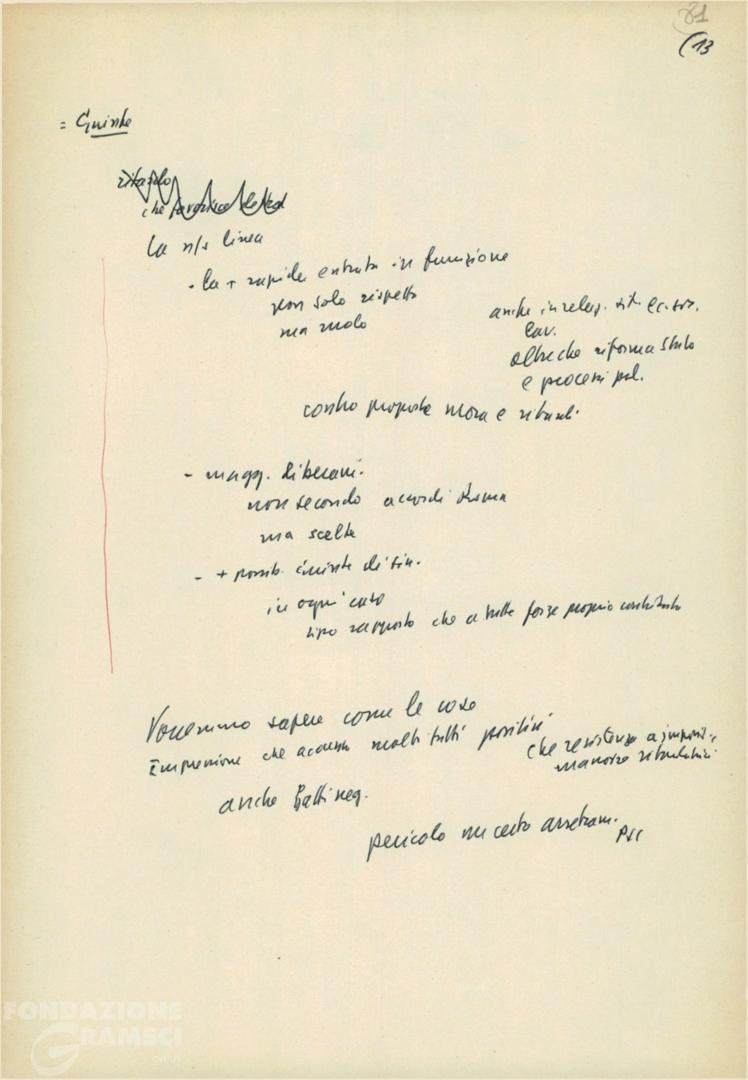 81
(13
= Giunte
ritardo
che favorisce
la n/s linea
- la + rapida entrata in funzione
non solo rispetto
ma ruolo
anche in relaz. sit. ec. soc.
lav.
oltreché riforma Stato
e processi pol.
contro proposte mora e
- magg.
non secondo accordi Roma
ma scelte
- + possib. giunte di sin.
in ogni caso
tipo rapporto che a tutte forze proprio contributo
Vorremmo sapere come le cose
Impressione che accanto molti fatti positivi
che resistenze a
manovre
anche fatti neg.
pericolo un certo arretram.
PSI
FONDAZIONE
GRAMSCI
onlus